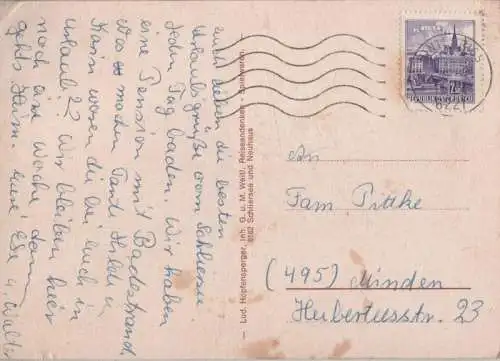 euch lieben die besten
Urlaubsgrüße vom Schliersee.
Jeden Tag baden. Wir haben
eine Pension mit Badestrand.
Was machen Tante Hilde u.
Karin waren die bei euch in
Urlaub? Wir bleiben hier
noch eine Woche dann
gehts Heim. Eure Else u. Walter
Lud. Hopfensperger, Inh. G. u. M. Weitl, Reiseandenken - Spielwaren,
8162 Schliersee und Neuhaus
An
Fam Pittke
(495) Minden
Herbertusstr. 23